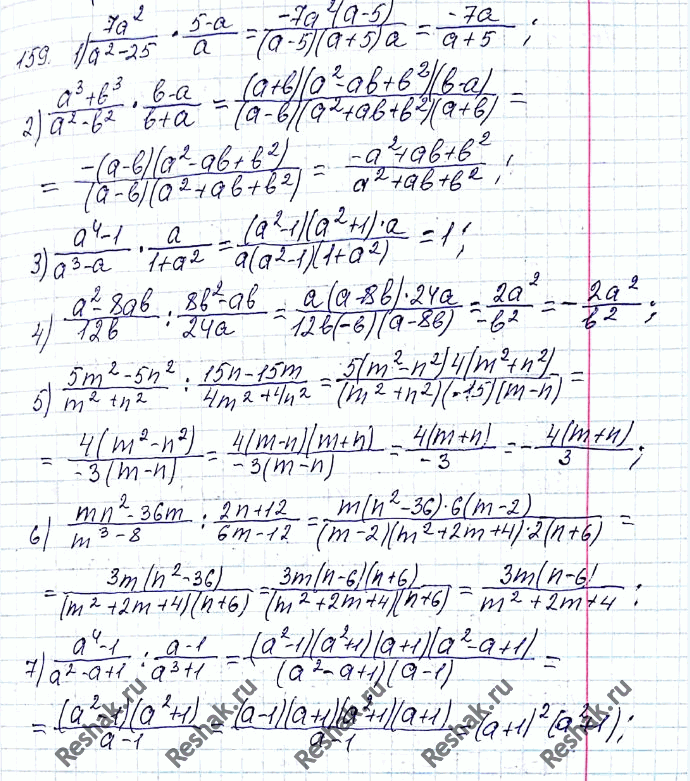 159. 1) 7a²/(a²-25) · (5-a)/a = -7a²(a-5)/((a-5)(a+5)a) = -7a/(a+5) ;
2) (a³+b³)/(a²-b²) · (b-a)/(b+a) = (a+b)(a²-ab+b²)(b-a)/((a-b)(a²+ab+b²)(a+b)) =
= -(a-b)(a²-ab+b²)/((a-b)(a²+ab+b²)) = (-a²+ab+b²)/(a²+ab+b²) ;
3) (a⁴-1)/(a³-a) · a/(1+a²) = (a²-1)(a²+1)·a/(a(a²-1)(1+a²)) = 1 ;
4) (a²-8ab)/12b : (8b²-ab)/24a = a(a-8b)·24a/(12b(-b)(a-8b)) = 2a²/-b² = - 2a²/b² ;
5) (5m²-5n²)/(m²+n²) : (15n-15m)/(4m²+4n²) = 5(m²-n²)4(m²+n²)/((m²+n²)(-15)(m-n)) =
= 4(m²-n²)/(-3(m-n)) = 4(m-n)(m+n)/(-3(m-n)) = 4(m+n)/-3 = - 4(m+n)/3 ;
6) (mn²-36m)/(m³-8) : (2n+12)/(6m-12) = m(n²-36)·6(m-2)/((m-2)(m²+2m+4)·2(n+6)) =
= 3m(n²-36)/((m²+2m+4)(n+6)) = 3m(n-6)(n+6)/((m²+2m+4)(n+6)) = 3m(n-6)/(m²+2m+4) ;
7) (a⁴-1)/(a²-a+1) : (a-1)/(a³+1) = (a²-1)(a²+1)(a+1)(a²-a+1)/((a²-a+1)(a-1)) =
= (a²-1)(a²+1)/(a-1) = (a-1)(a+1)(a²+1)(a+1)/(a-1) = (a+1)²(a²+1) ;
Reshak.ru Reshak.ru Reshak.ru Reshak.ru Reshak.ru